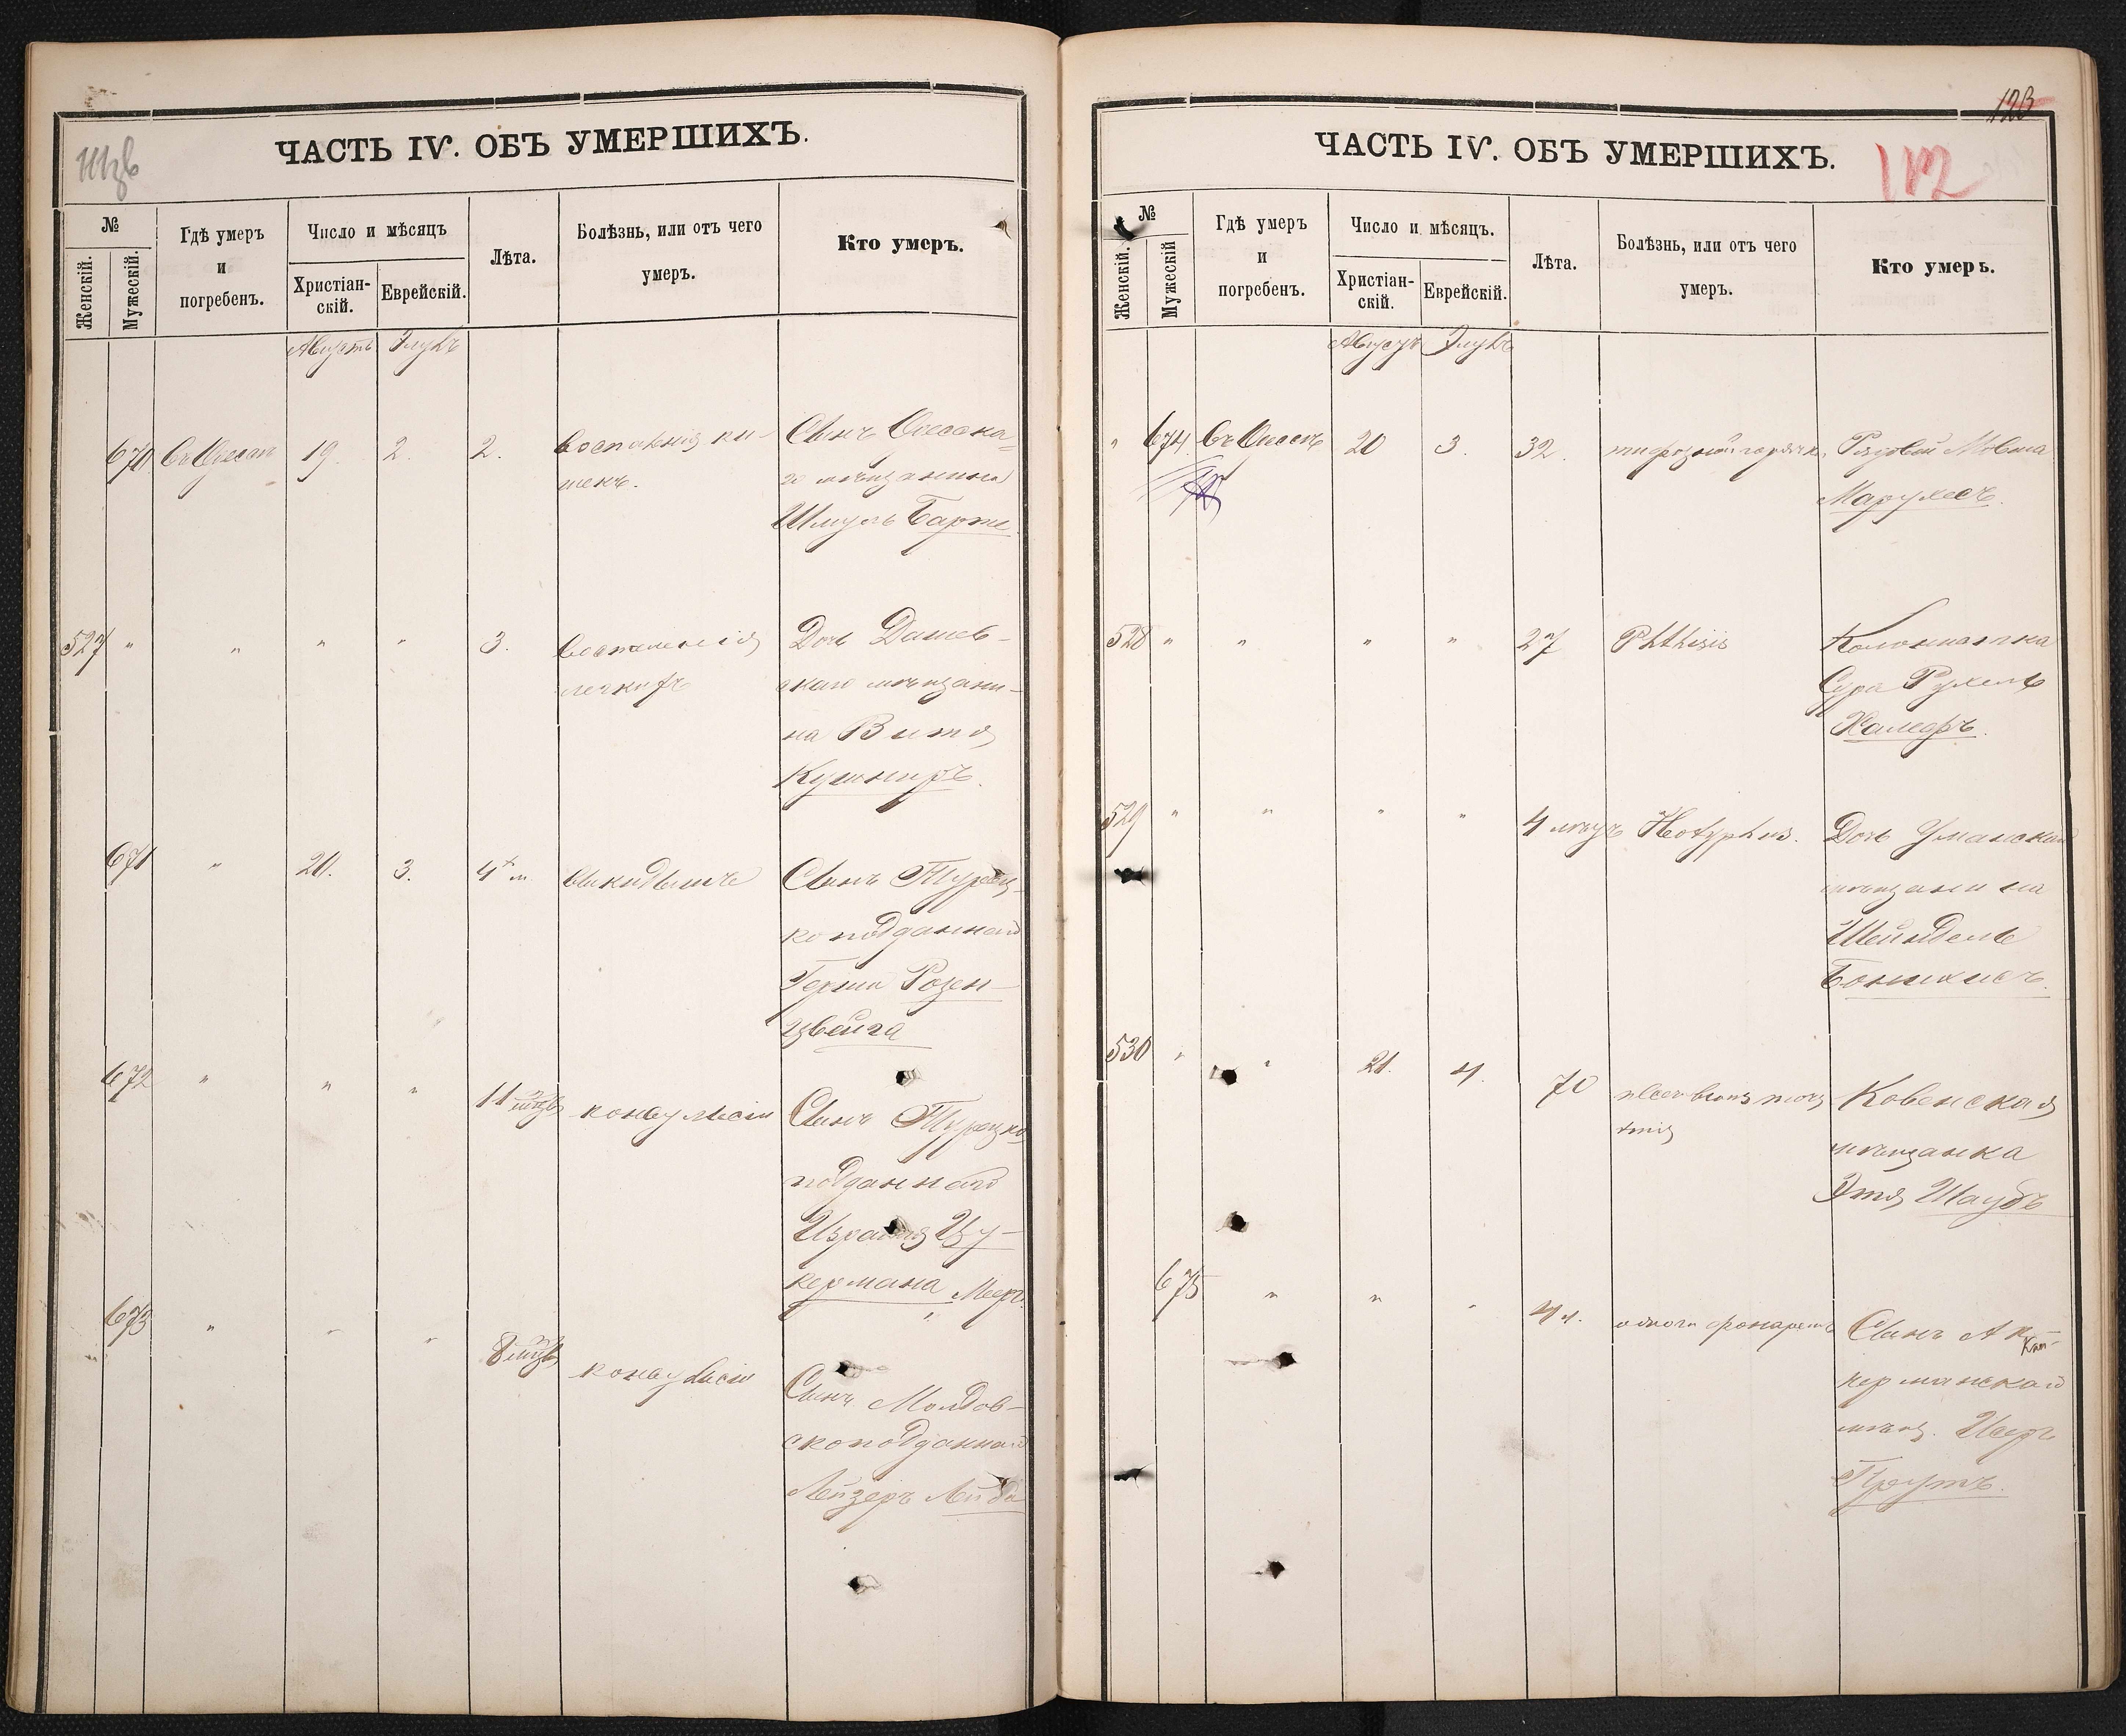 ЧАСТЬ IV. ОБЪ УМЕРШИХЪ.
№
Женскій.
Мужескій.
Гдѣ умеръ
и
погребенъ.
Число и мѣсяцъ
Христіан-
скій.
Еврейскій.
Лѣта.
Болѣзнь, или отъ чего
умеръ.
Кто умеръ.
Августъ Элулъ
670 Въ Одессѣ 19. 2. 2. Воспаленія ки- Сынъ Одесска-
шекъ. го мѣщанина
Шмуль Барже
527 " " " " 3. Воспаленія Дочь Дашев-
легкихъ скаго мѣщани-
на Витя
Кушниръ.
671 " 20. 3. 4 м Выкидышъ Сынъ Турец-
коподданнаго
Герша Розен-
цвейга
672 " " " 11 мѣц конвульсіи Сынъ Турецко
подданнаго
Израиля Цу-
кермана Меер.
673 " " " 8 мѣц конвульсіи Сынъ Молдав-
скоподданнаго
Лейзеръ Лейба
123
ЧАСТЬ IV. ОБЪ УМЕРШИХЪ.
112
№
Женскій.
Мужескій
Гдѣ умеръ
и
погребенъ.
Число и мѣсяцъ.
Христіан-
скій.
Еврейскій.
Лѣта.
Болѣзнь, или отъ чего
умеръ.
Кто умеръ.
Августъ Элулъ
" 674. Въ Одессѣ 20 3. 32. тифозной горячк. Рядовой Мовша
Марулесъ.
528 " " " " 27 Phthisis Колонистка
Сура Рухель
Халефъ.
529 " " " " 4 мѣсц. Дочь Уманскаго
мѣщанина
Шейндель
530 " " 21. 4. 70 Ковенская
мѣщанка
Этя Шаубъ
675 " " " 4 м. Сынъ Ак
Кат-
керманскаго
мѣщ. Иеръ
Прутъ.